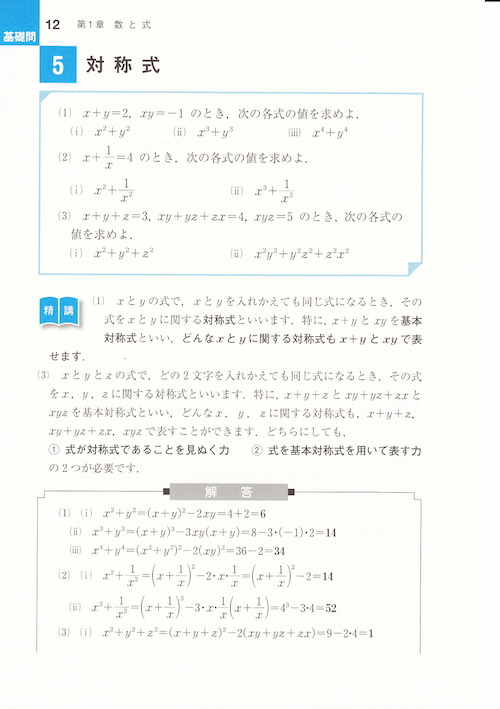 基礎問
12 第1章 数と式
5 対称式
(1) x+y=2, xy=-1 のとき,次の各式の値を求めよ.
(i) x²+y² (ii) x³+y³ (iii) x⁴+y⁴
(2) x+1/x=4 のとき,次の各式の値を求めよ.
(i) x²+1/x² (ii) x³+1/x³
(3) x+y+z=3, xy+yz+zx=4, xyz=5 のとき,次の各式の
値を求めよ.
(i) x²+y²+z² (ii) x²y²+y²z²+z²x²
精講
(1) xとyの式で,xとyを入れかえても同じ式になるとき,その
式をxとyに関する対称式といいます.特に,x+yとxyを基本
対称式といい,どんなxとyに関する対称式もx+yとxyで表
せます.
(3) xとyとzの式で,どの2文字を入れかえても同じ式になるとき,その式
をx,y,zに関する対称式といいます.特に,x+y+zとxy+yz+zxと
xyzを基本対称式といい,どんなx,y,zに関する対称式も,x+y+z,
xy+yz+zx,xyzで表すことができます.どちらにしても,
① 式が対称式であることを見ぬく力 ② 式を基本対称式を用いて表す力
の2つが必要です.
解答
(1) (i) x²+y²=(x+y)²-2xy=4+2=6
(ii) x³+y³=(x+y)³-3xy(x+y)=8-3・(-1)・2=14
(iii) x⁴+y⁴=(x²+y²)²-2(xy)²=36-2=34
(2) (i) x²+1/x²=(x+1/x)²-2・x・1/x=(x+1/x)²-2=14
(ii) x³+1/x³=(x+1/x)³-3・x・1/x(x+1/x)=4³-3・4=52
(3) (i) x²+y²+z²=(x+y+z)²-2(xy+yz+zx)=9-2・4=1